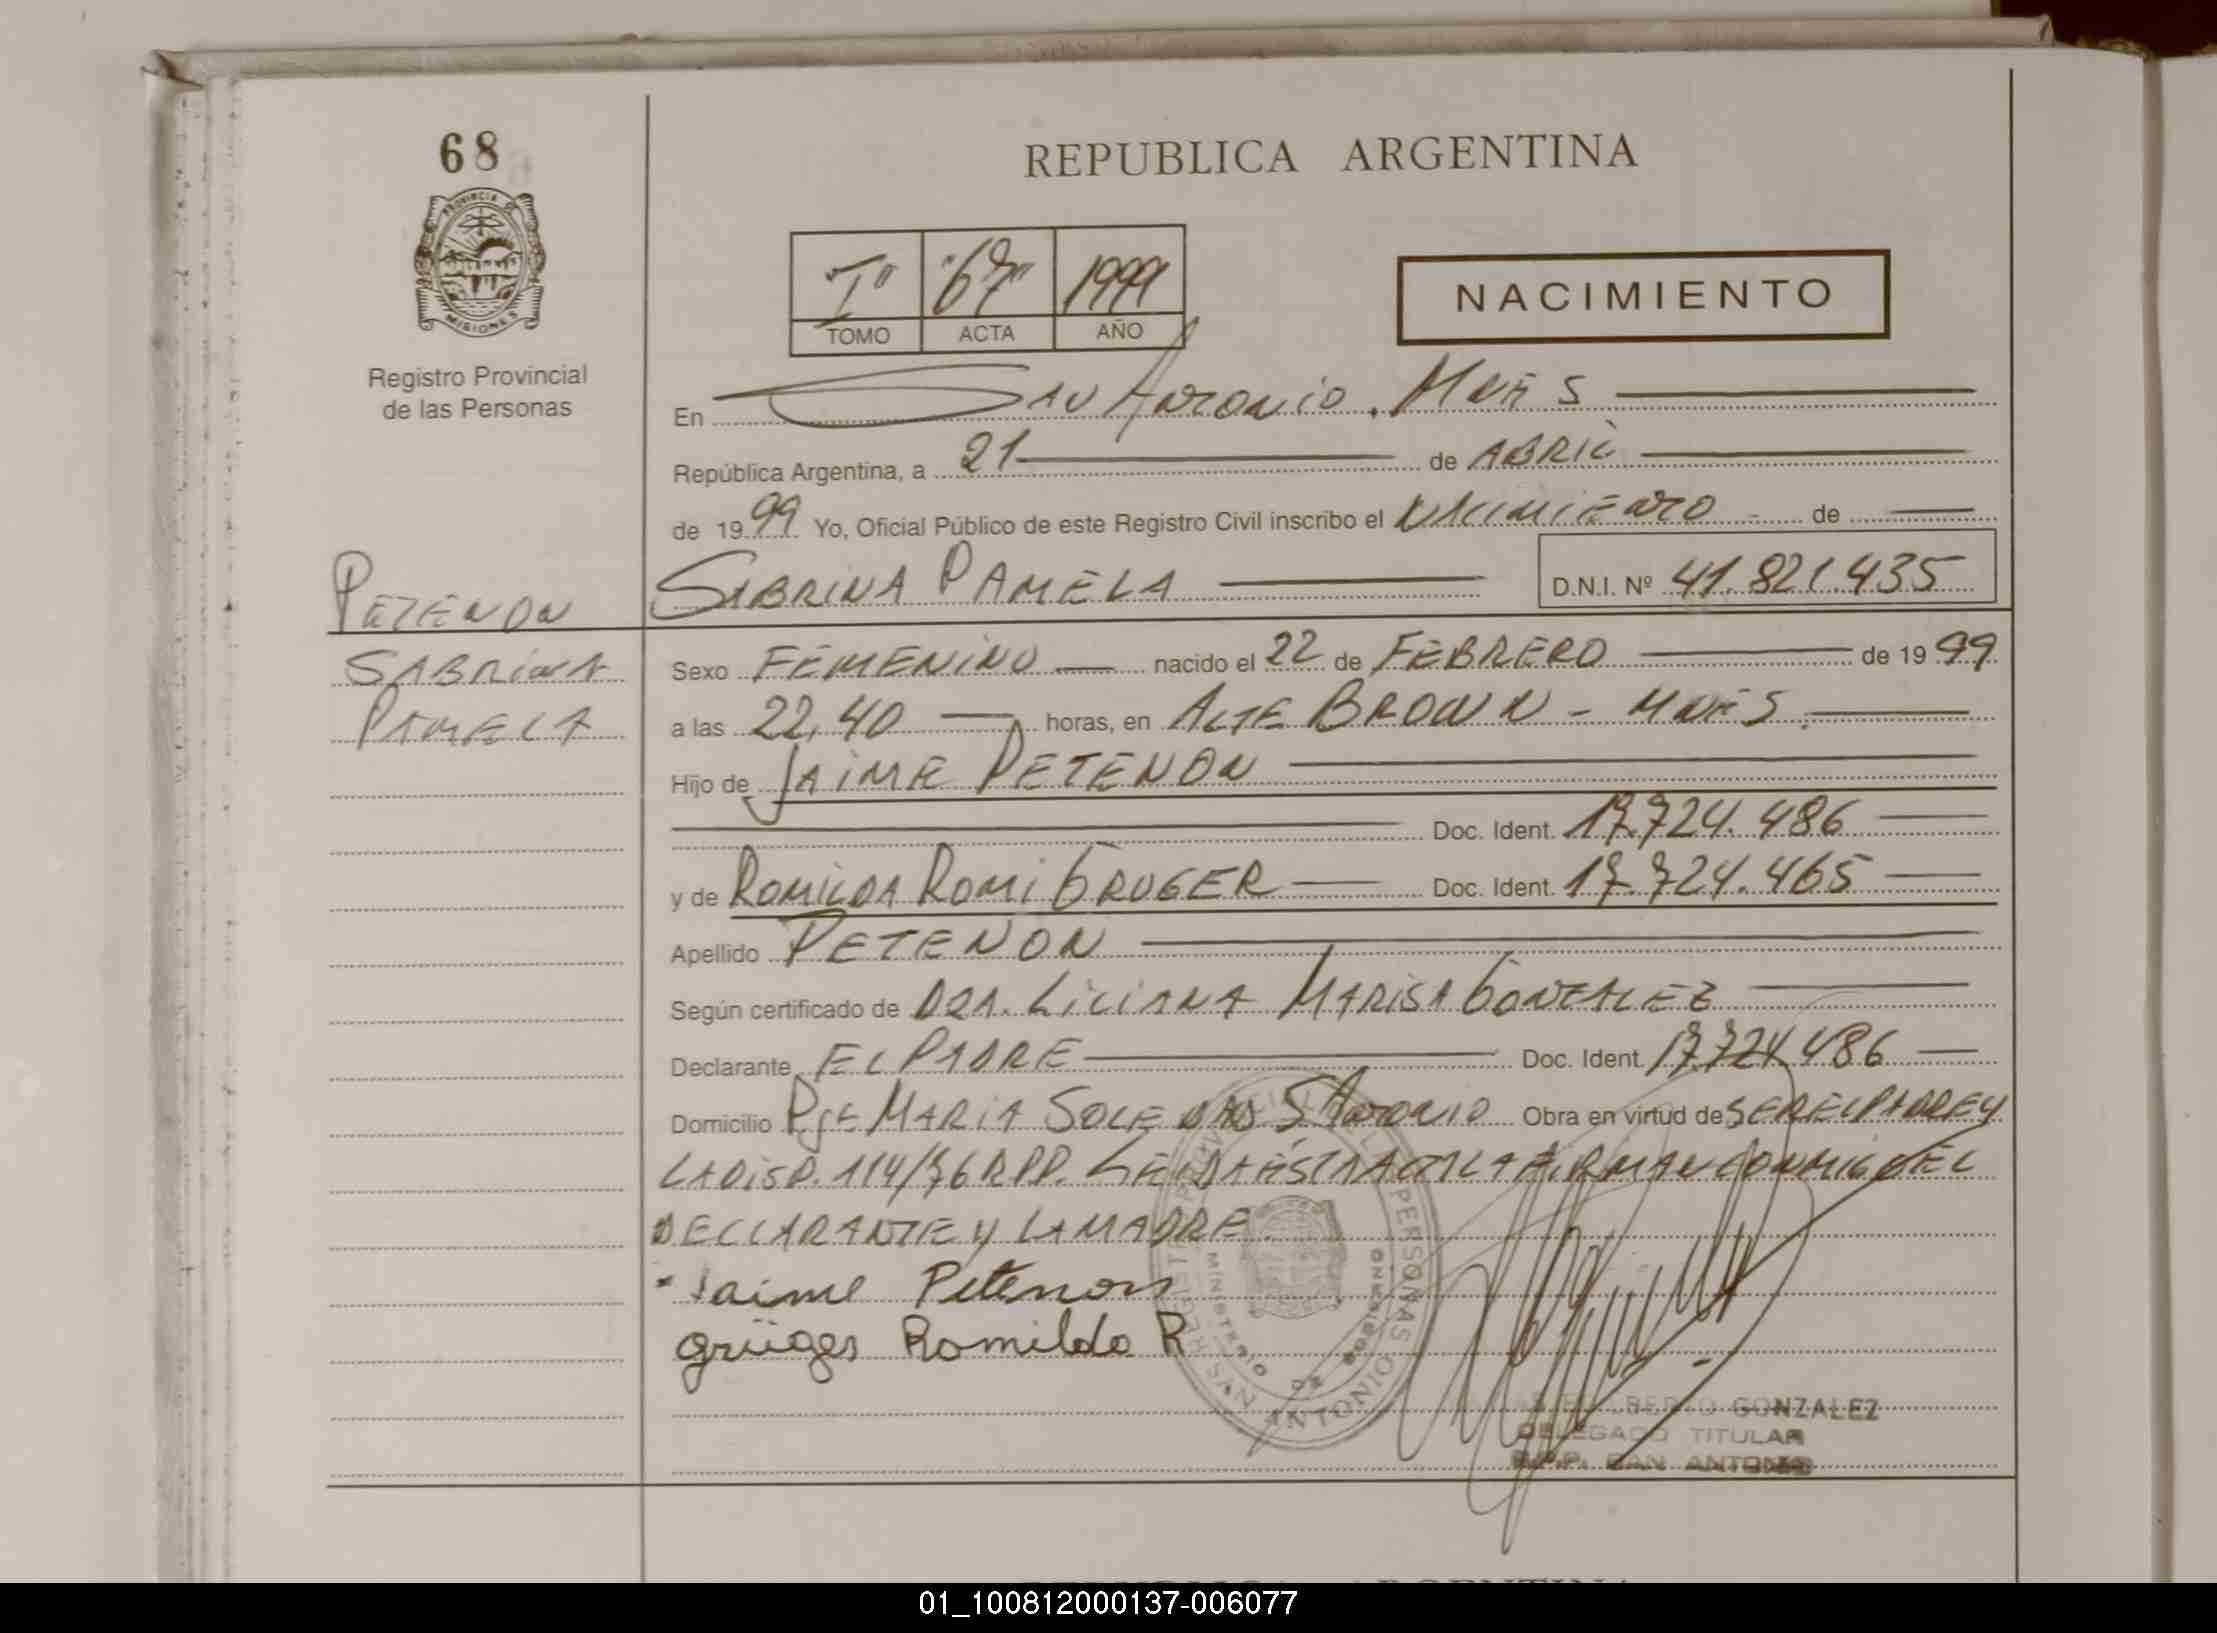 68
REPUBLICA ARGENTINA
PROVINCIA DE
MISIONES
Registro Provincial
de las Personas
"I" "67" 1999
TOMO ACTA AÑO
NACIMIENTO
En SAN ANTONIO. MNES
República Argentina, a 21 de ABRIL
de 1999 Yo, Oficial Público de este Registro Civil inscribo el NACIMIENTO de
PETENON SABRINA PAMELA D.N.I. Nº 41.821.435
SABRINA Sexo FEMENINO nacido el 22 de FEBRERO de 1999
PAMELA a las 22,40 horas, en ALTE BROWN - MNES.
Hijo de JAIME PETENON
Doc. Ident. 17.724.486
y de ROMILDA ROMI GRUGER Doc. Ident. 17.724.465
Apellido PETENON
Según certificado de DRA. LILIANA MARISA GONZALEZ
Declarante EL PADRE Doc. Ident. 17.724.486
Domicilio PJE MARIA SOLEDAD S. ANTONIO Obra en virtud de SER EL PADRE Y
LA DISP. 114/76 RPP. LEIDA ESTA ACTA LA FIRMAN CONMIGO EL
DECLARANTE Y LA MADRE.
Jaime Petenon
grüger Romilda R
REGISTRO PROVINCIAL DE L PERSONAS
MINISTERIO DE GOBIERNO
SAN ANTONIO
GONZALEZ
DELEGADO TITULAR
R.P.P. SAN ANTONIO
REPUBLICA ARGENTINA
01_100812000137-006077